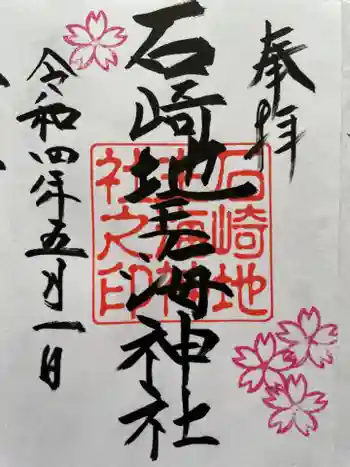 奉拝
石崎地主海神社
石崎地
主海神
社之印
令和四年五月一日